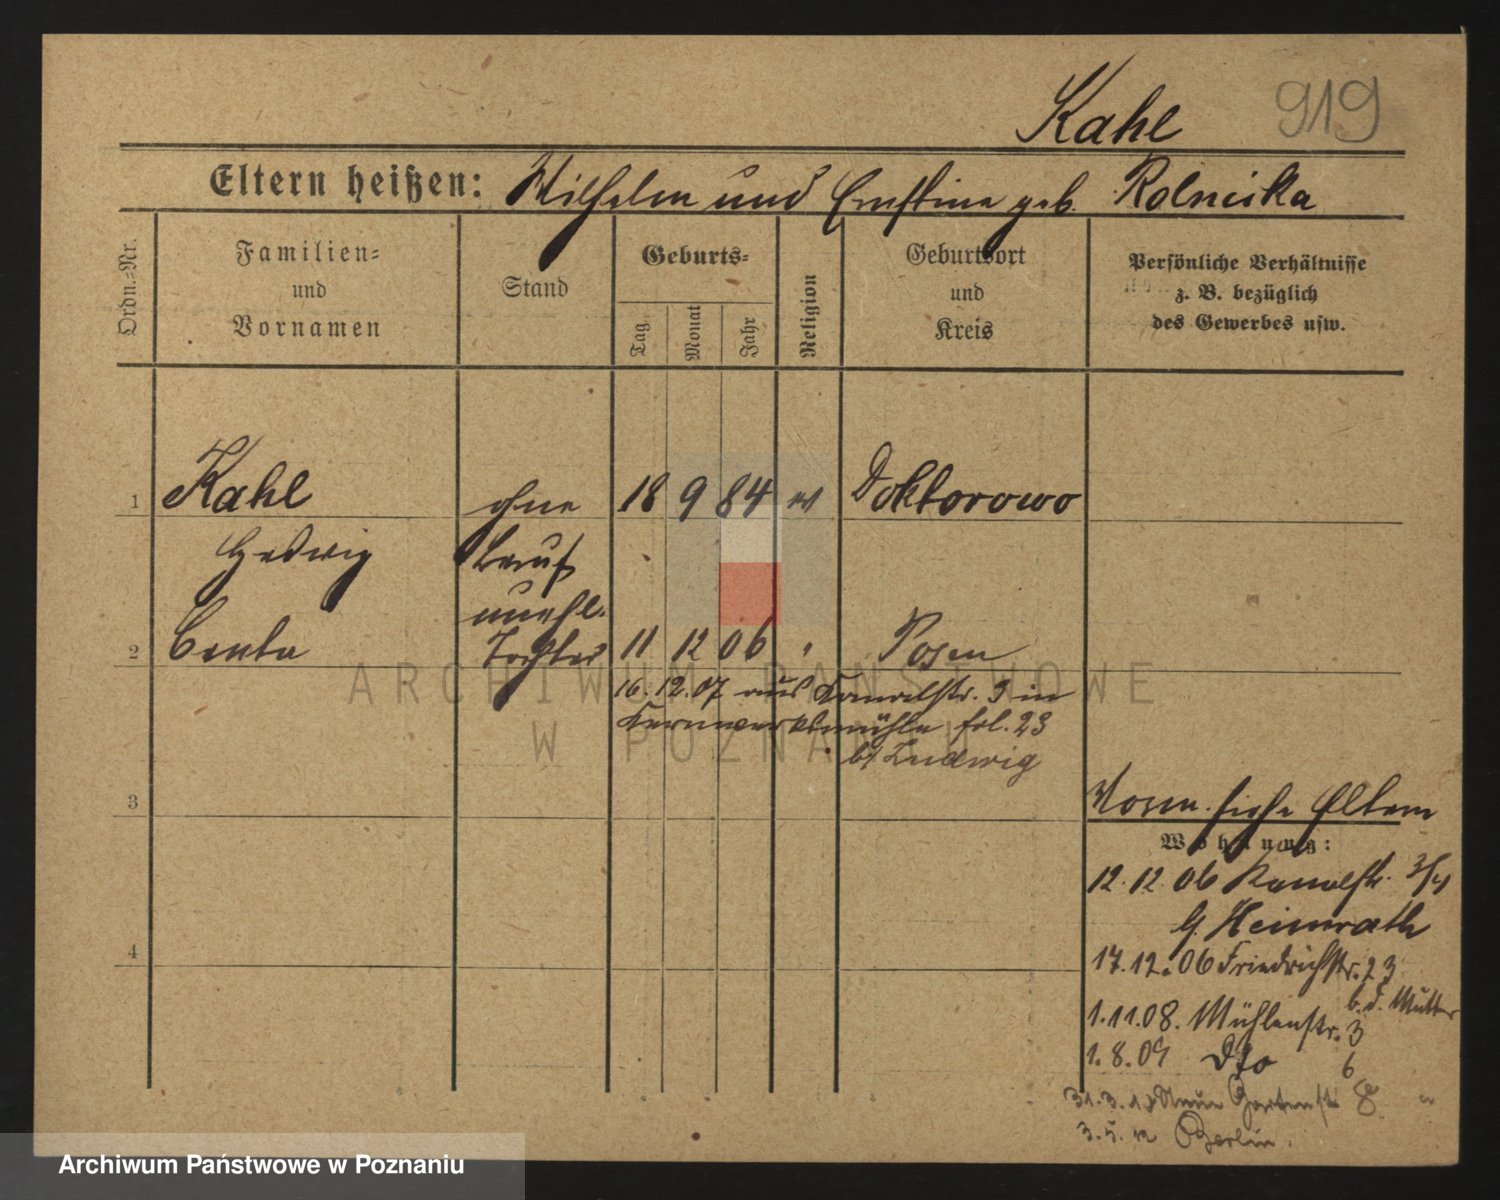 Kahl 919
Eltern heißen: Wilhelm und Ernstine geb. Rolnicka
Ordn.-Nr.
Familien- und Vornamen
Stand
Geburts-
Tag Monat Jahr
Religion
Geburtsort und Kreis
Persönliche Verhältnisse z. B. bezüglich des Gewerbes usw.
1 Kahl ohne 18 9 84 ev Doktorowo
Hedwig Beruf
unehl.
2 Tochter 11 12 06 " Posen
16. 12. 07 aus Kanalstr. 3 in
Kernwerksmühle fol. 23
b/ Ludwig
3
Vorm. siehe Eltern
Wohnung:
12. 12 06 Kanalstr. 3/4
G. Heimrath
17. 12. 06 Friedrichstr. 23
b. d. Mutter
1. 11. 08. Mühlenstr. 3
1. 8. 09 Dto 6
4
31. 3. Neue Gartenstr 8
3. 5. 12 Berlin.
ARCHIWUM PAŃSTWOWE
W POZNANIU
Archiwum Państwowe w Poznaniu